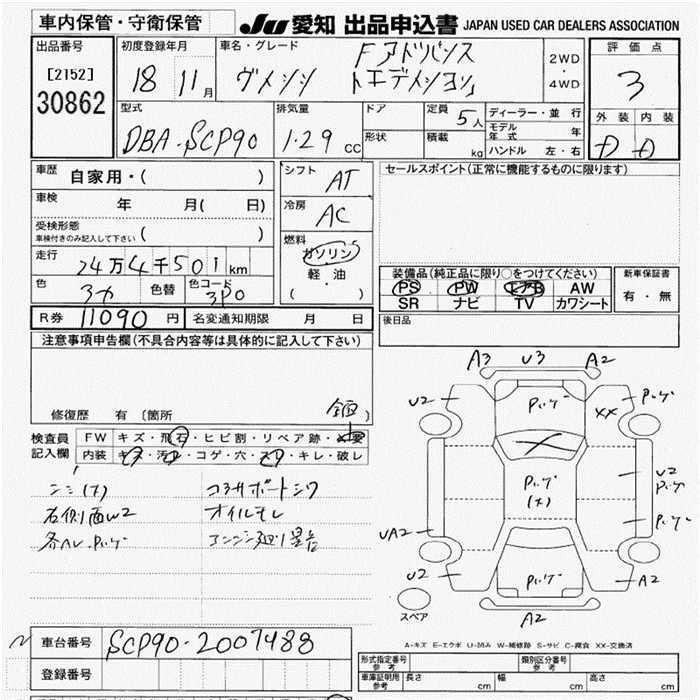 車内保管・守衛保管
JU 愛知 出品申込書 JAPAN USED CAR DEALERS ASSOCIATION
出品番号
[2152]
30862
初度登録年月
18 11月
車名・グレード
Fアドバンス
トエディション
2WD
・
4WD
評価点
3
外装 内装
D D
型式
DBA-SCP90
排気量
1.29 CC
ドア
形状
定員 5人
積載 kg
ディーラー・並行
モデル年式 年
ハンドル 左・右
車歴 自家用・( )
車検 年 月( 日)
受検形態
車検付きのみ記入して下さい ( )
走行 24万4千501km
色 色替 色コード 3P0
シフト AT
冷房 AC
燃料
ガソリン
・
軽油
( )
セールスポイント(正常に機能するものに限ります)
装備品(純正品に限り○をつけてください)
PS PW エアB AW
SR ナビ TV カワシート
新車保証書
有・無
R券 11090円
名変通知期限 月 日
後日品
注意事項申告欄(不具合内容等は具体的に記入して下さい)
修復歴 有 〔箇所 〕
検査員
記入欄
FW キズ・飛石・ヒビ割・リペア跡・
内装 キズ・汚レ・コゲ・穴・スレ・キレ・破レ
右側面W2
オイルモレ
A3 U3 A2
U2
XX
U2
UA2
U2 A2
A2
スペア
A-キズ E-エクボ U-凹み W-補修跡 S-サビ C-腐食 XX-交換済
車台番号 SCP90-2007488
登録番号
形式指定番号
参考
類別区分番号
参考
車庫証明用
参考
長さ cm 幅 cm 高さ cm